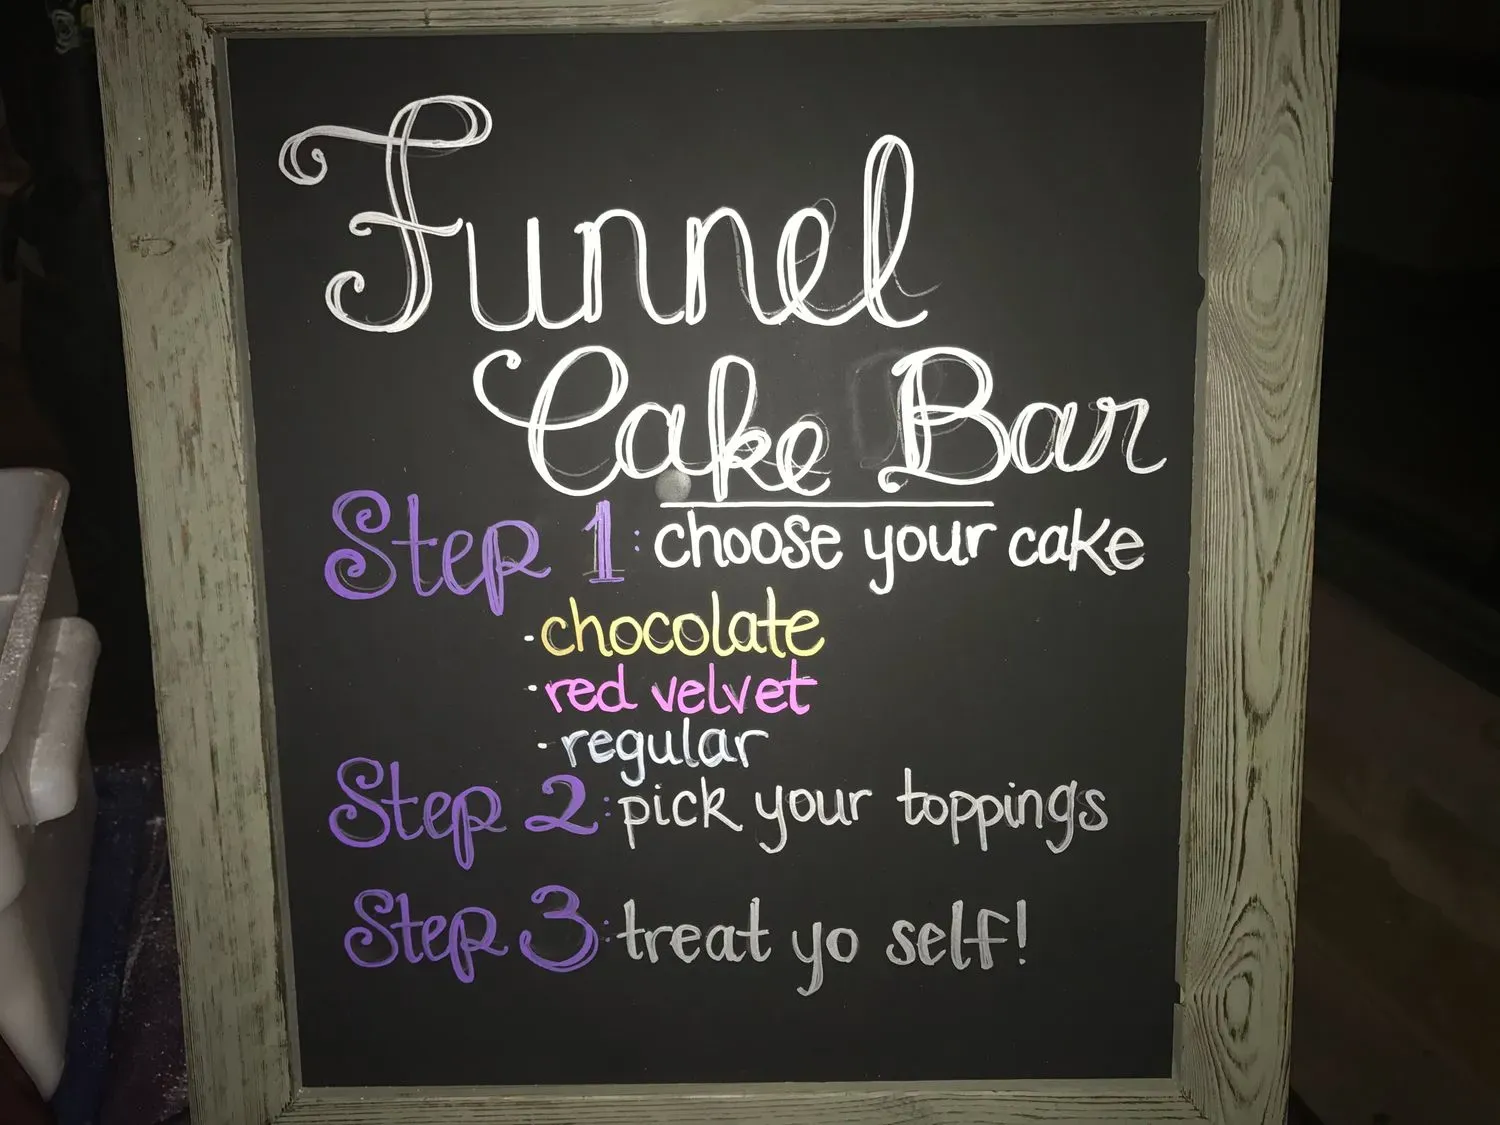 Funnel
Cake Bar
Step 1: choose your cake
- chocolate
- red velvet
- regular
Step 2: pick your toppings
Step 3: treat yo self!